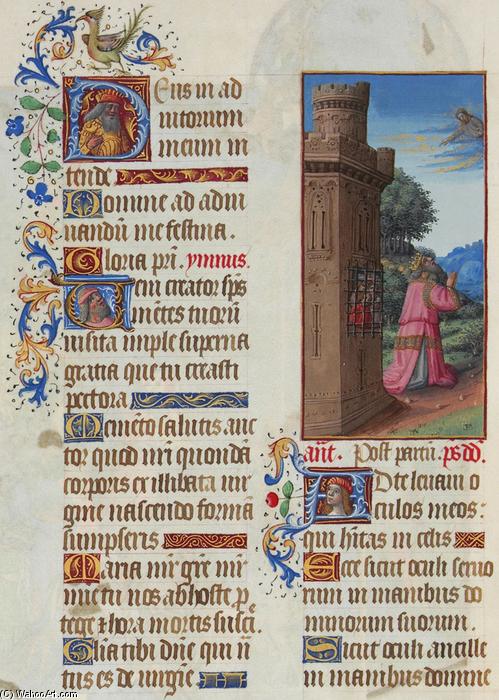 Deus in ad
iutorium
meum in
tende
Domine ad adiu
uandū me festina.
Gloria pri. ymnus.
Veni creator sps
mētes tuorū
uisita imple superna
gratia que tu creasti
pectora
Memēto salutis auc
tor quod nrī quondā
corporis ex illibata uir
gine nascendo formā
sumpseris
Maria mr gre mr
mie tu nos ab hoste p
tege & hora mortis susci.
Glia tibi dne qui n
tus es de uirgie
añt. Post partū. ps dd.
Ad te leuaui o
culos meos:
qui hitas in celis
Ecce sicut oculi seruo
rum in manibus do
minorum suorum.
Sicut oculi ancille
in manibus domine
(C) WahooArt.com